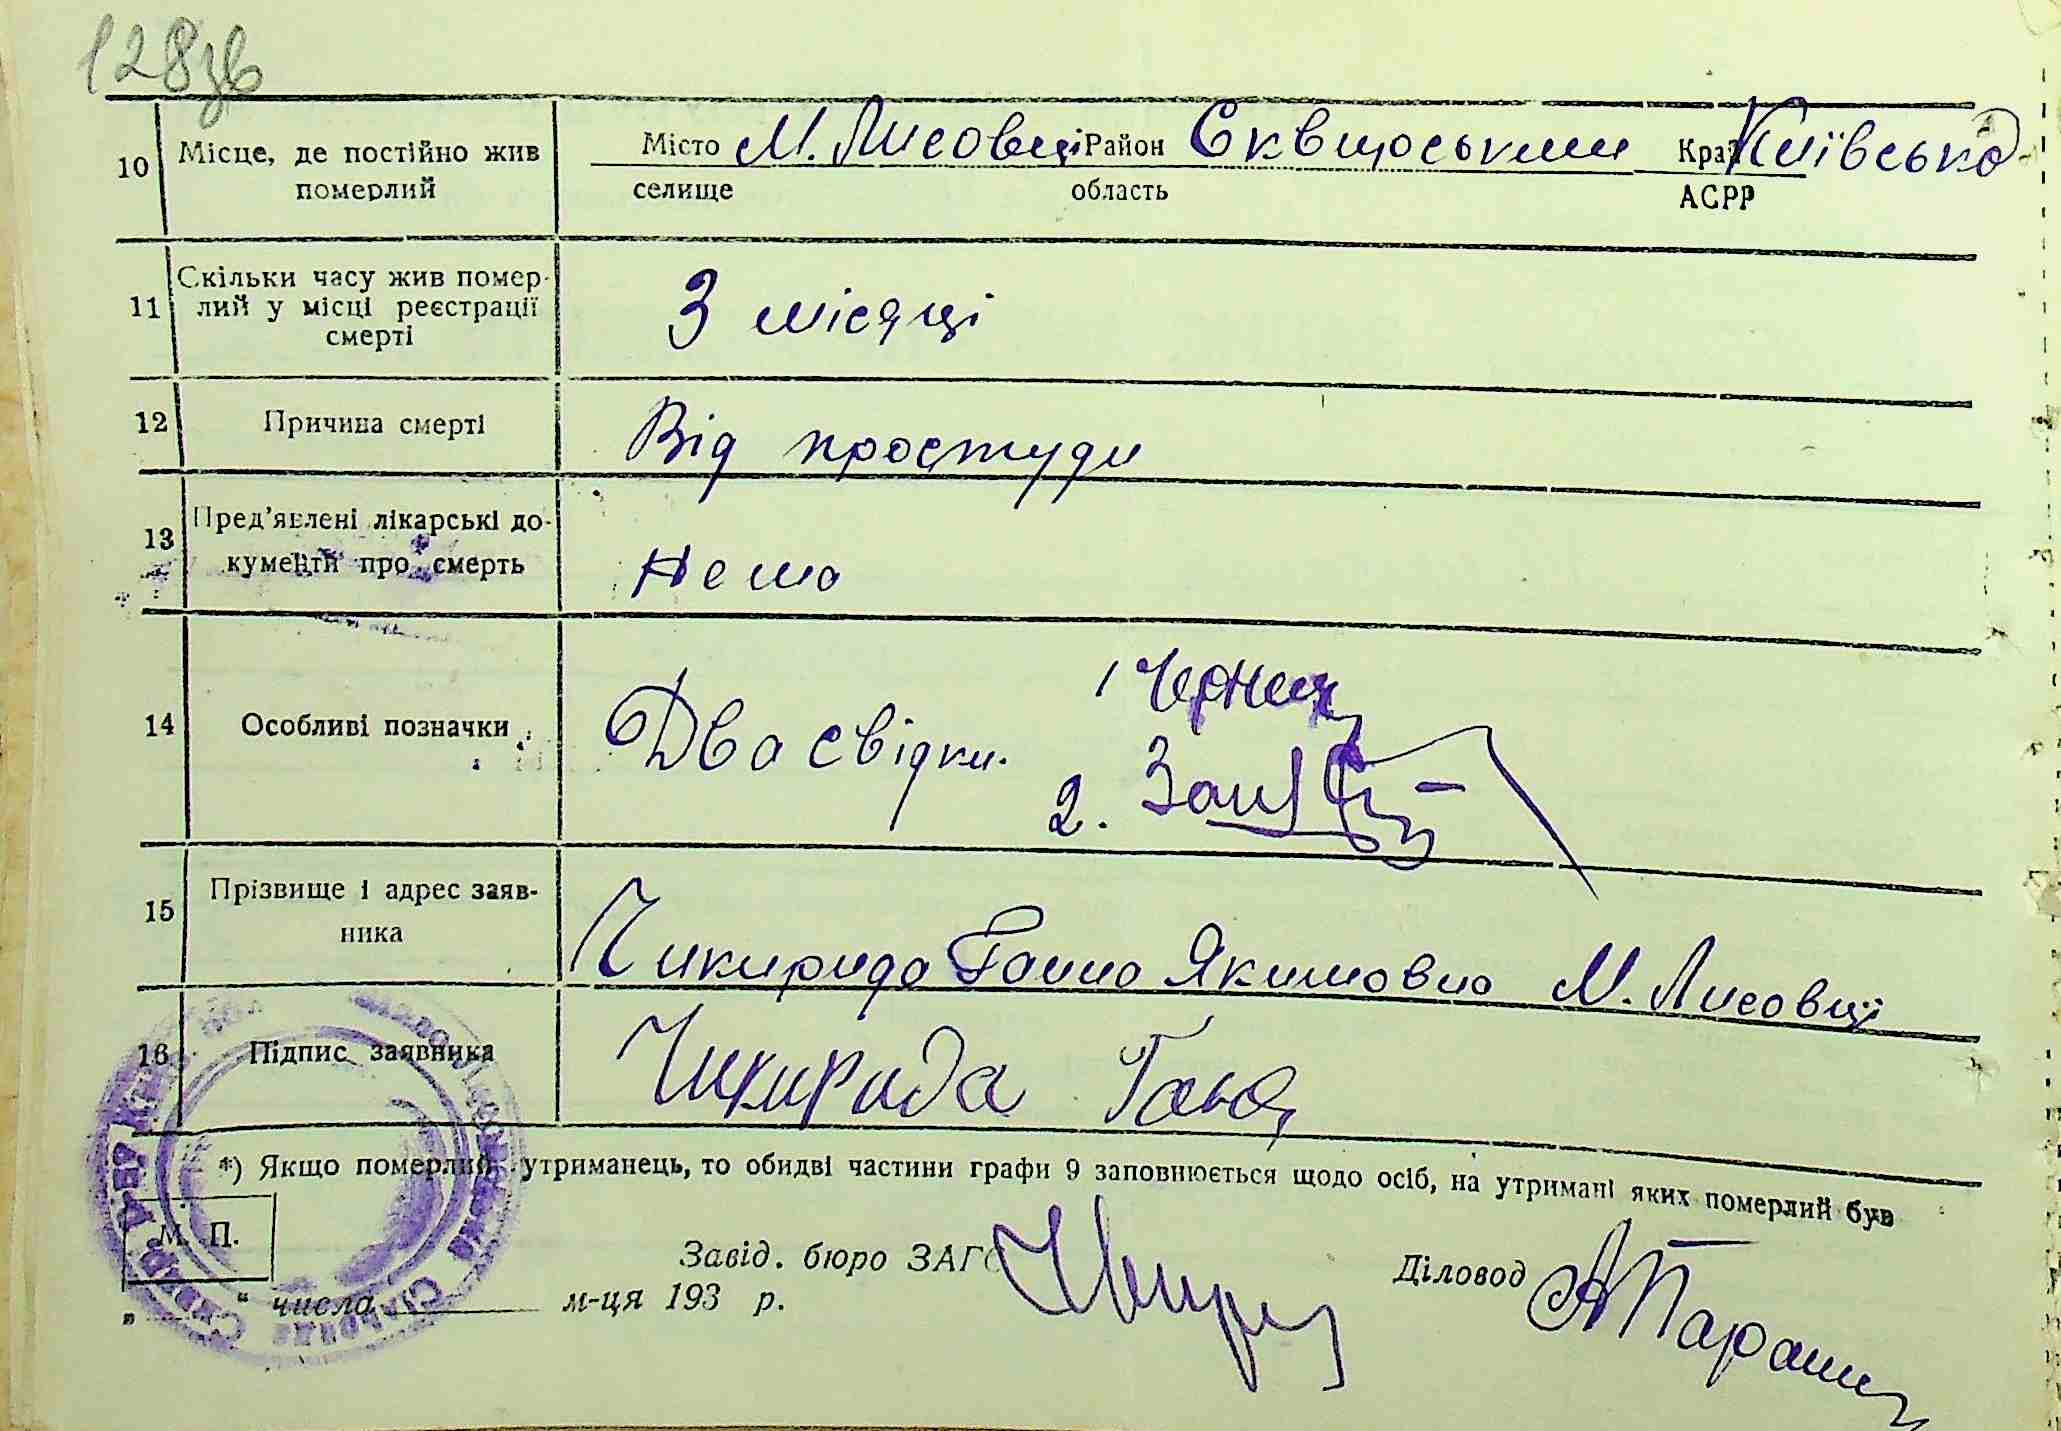 128зв
10 Місце, де постійно жив Місто М. Лисовці Район Сквирський Край Київська
померлий селище область АСРР
11 Скільки часу жив помер-
лий у місці реєстрації 3 місяці
смерті
12 Причина смерті Від простуди
13 Пред'явлені лікарські до-
кументи про смерть Нема
14 Особливі позначки Два свідки. 1
2.
15 Прізвище і адрес заяв- Чикирида Ганна Якимовна М. Лисовці
ника
16 Підпис заявника Чикирида Ганя
*) Якщо померлий утриманець, то обидві частини графи 9 заповнюється щодо осіб, на утримані яких померлий був
М. П.
Завід. бюро ЗАГС Діловод
„ “ числа м-ця 193 р.